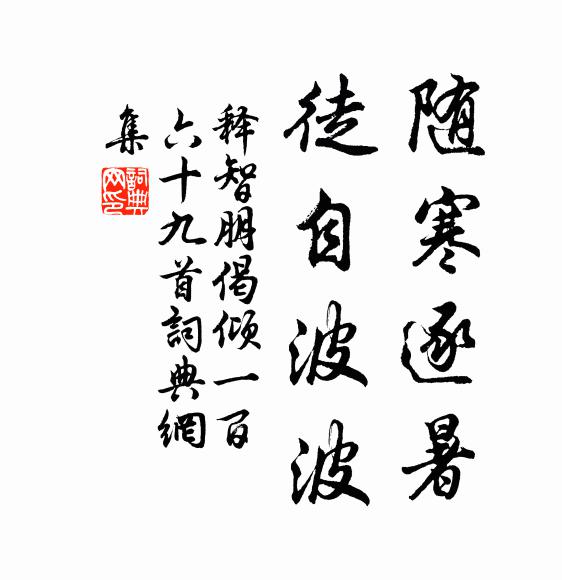 随寒逐暑
徒自波波
释智朋偈倾一百
六十九首詞典網
集
詞典網印